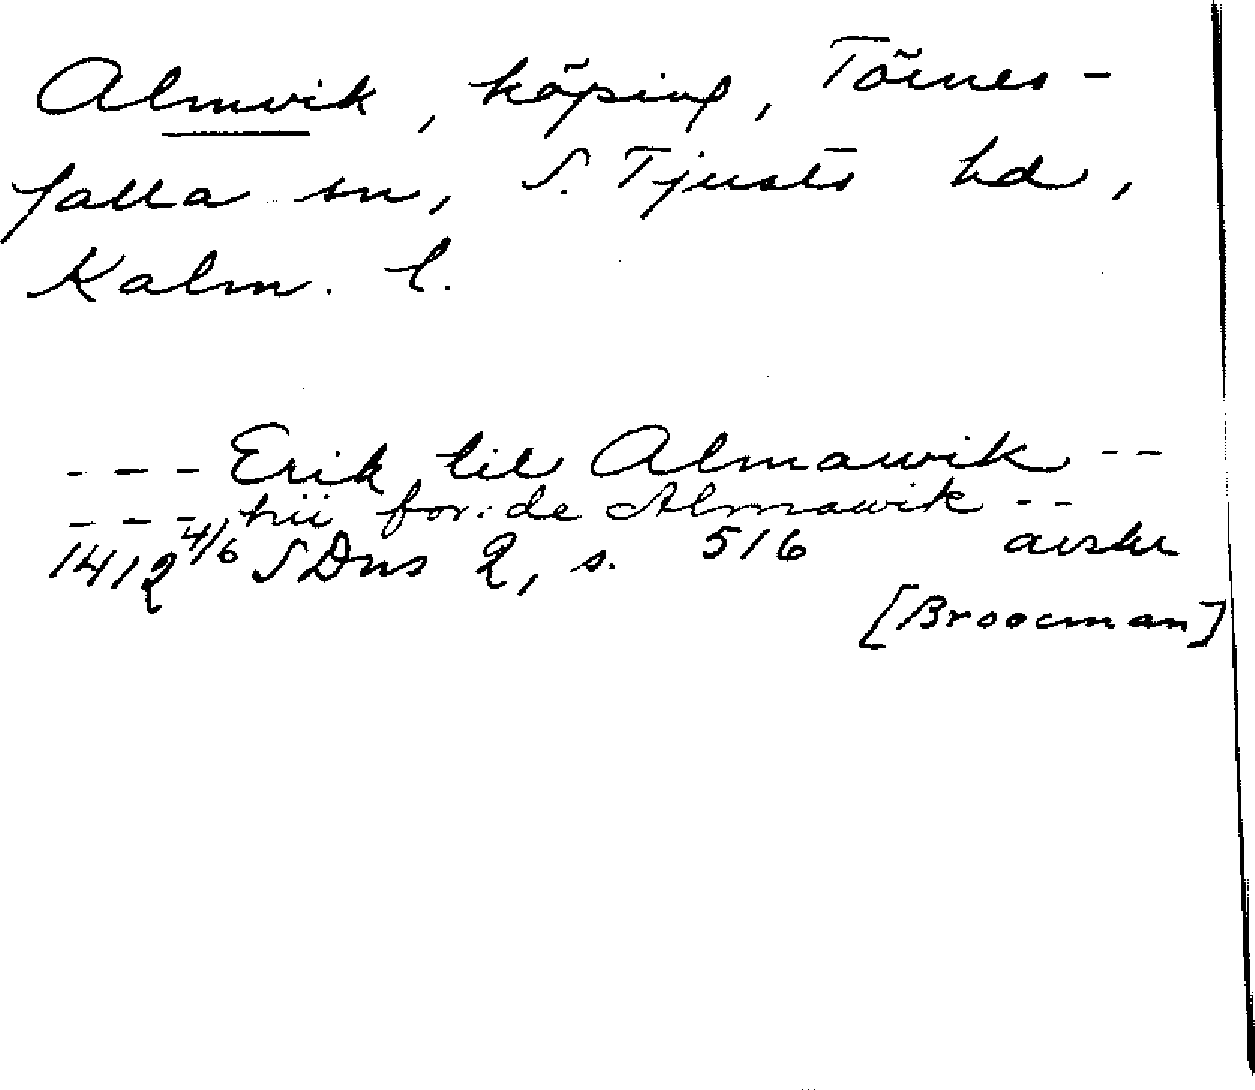 Almvik, köping, Törnes-
falla sn, S. Tjusts hd,
Kalm. l.
--- Erik til Almawik --
--- tii for:de Almawik --
1412 4/6 SDns 2, s. 516 avskr
[Broocman]